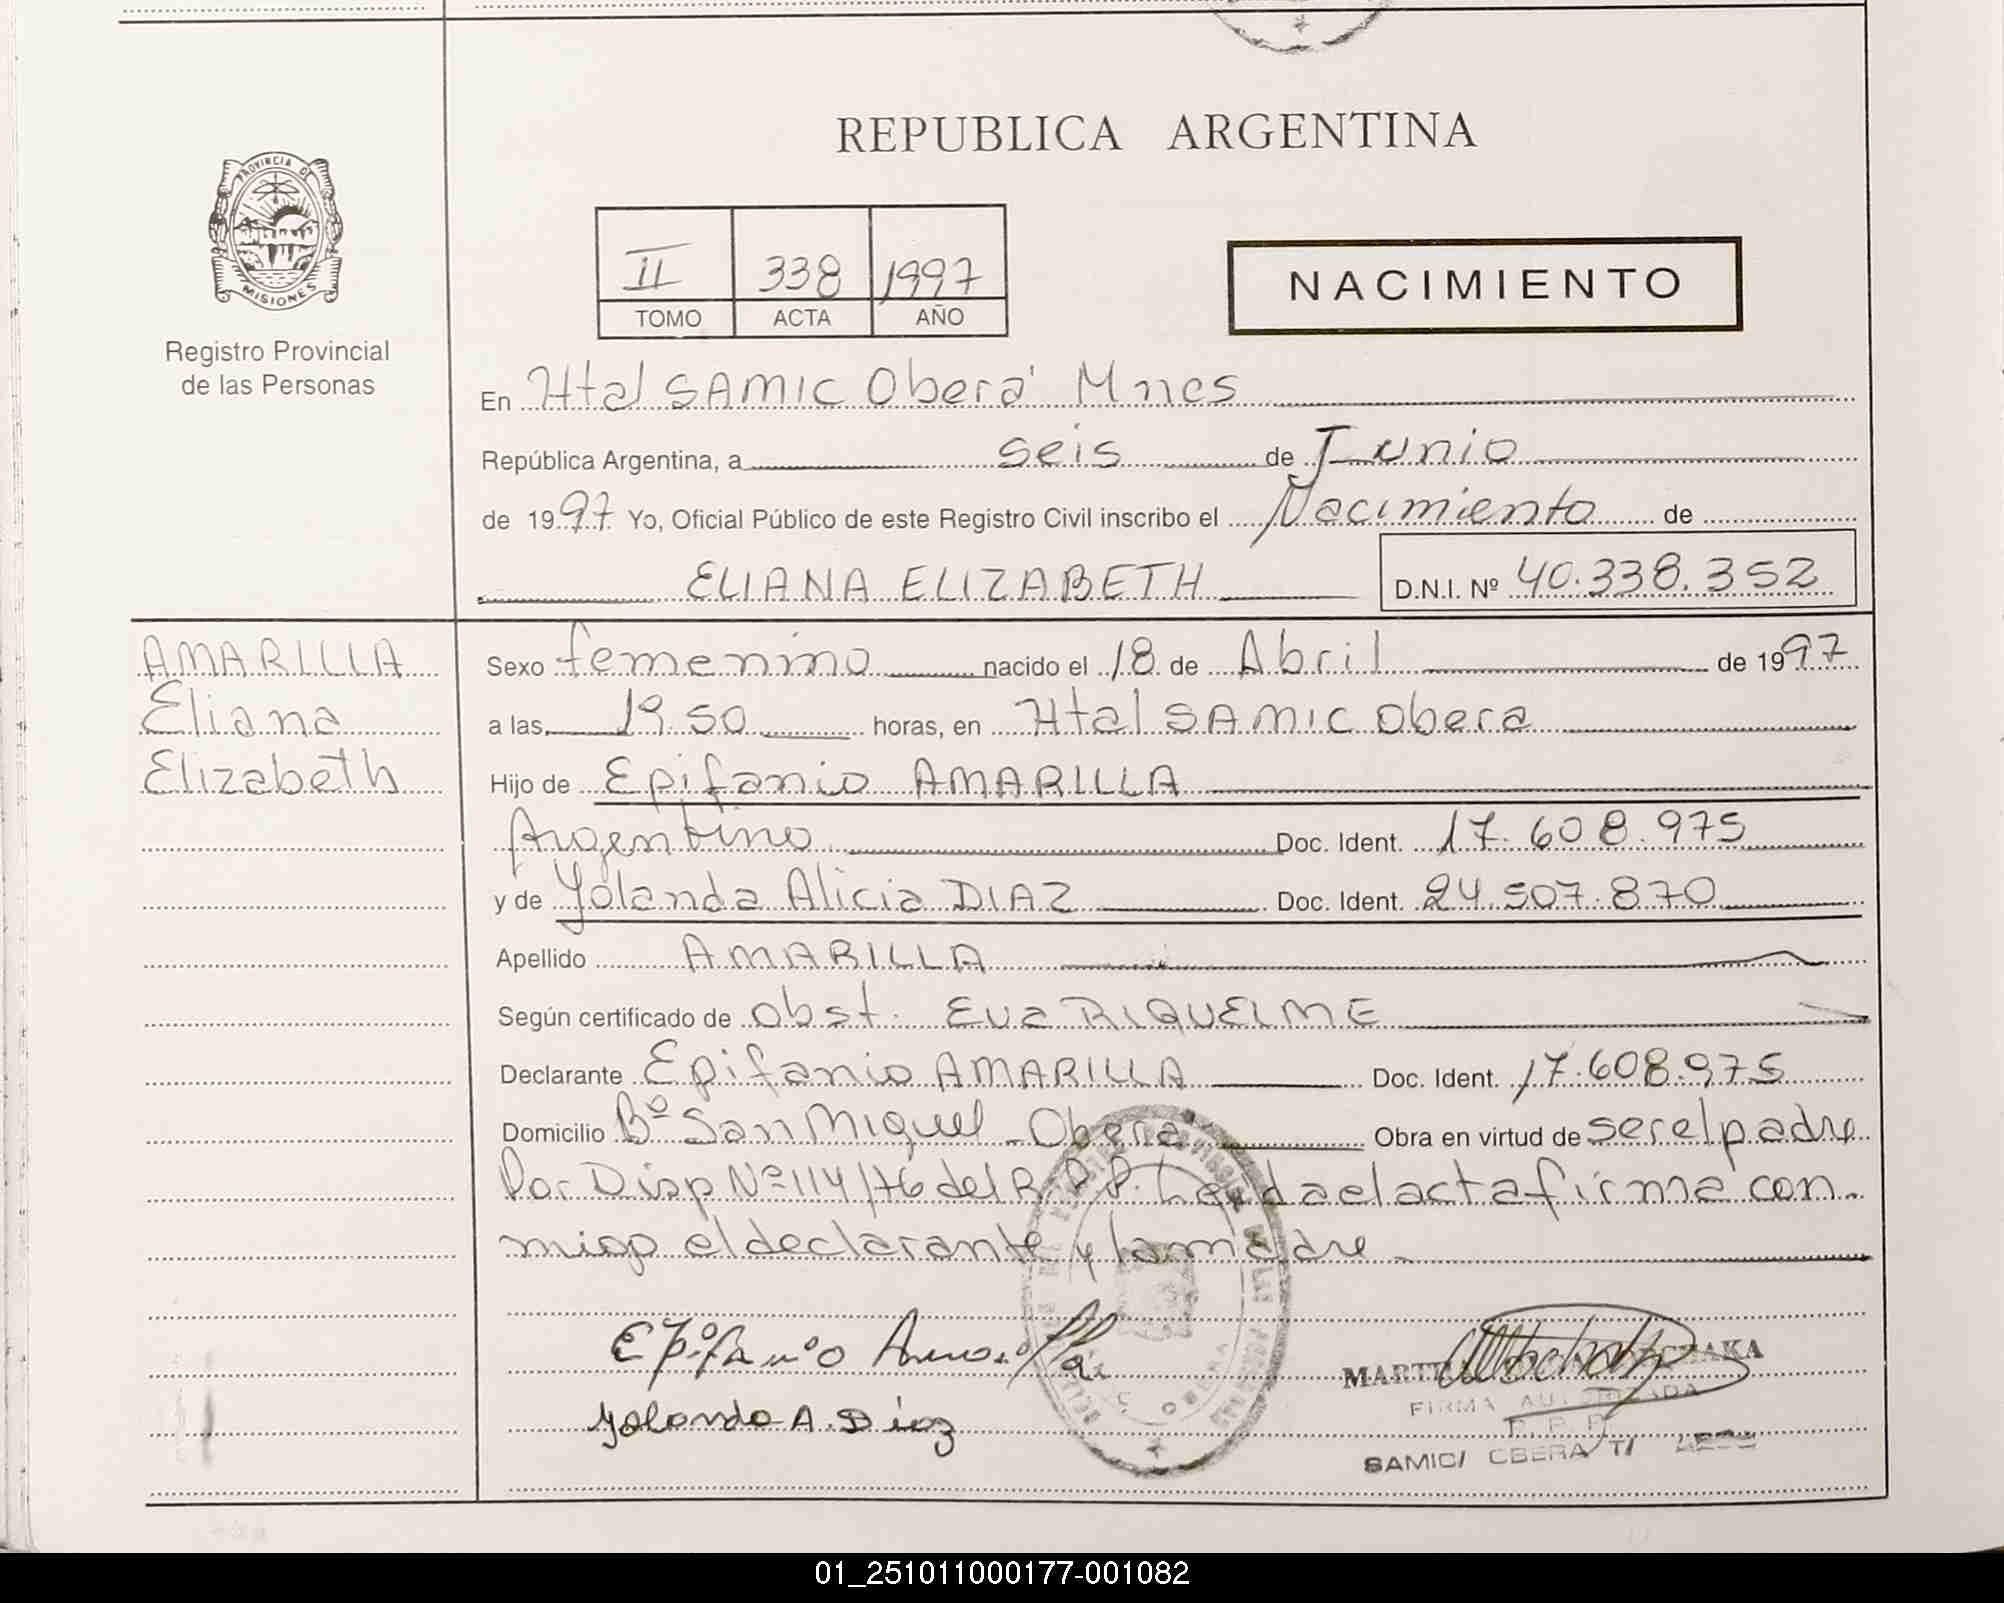 REPUBLICA ARGENTINA
PROVINCIA DE
MISIONES
Registro Provincial
de las Personas
II 338 1997
TOMO ACTA AÑO
NACIMIENTO
En Htal SAMIC Oberá Mnes
República Argentina, a seis de Junio
de 1997 Yo, Oficial Público de este Registro Civil inscribo el Nacimiento de
ELIANA ELIZABETH D.N.I. Nº 40.338.352
AMARILLA
Eliana
Elizabeth
Sexo femenino nacido el 18 de Abril de 1997
a las 19.50 horas, en Htal SAMIC Obera
Hijo de Epifanio AMARILLA
Argentino Doc. Ident. 17.608.975
y de Yolanda Alicia DIAZ Doc. Ident. 24.507.870
Apellido AMARILLA
Según certificado de obst. Eva RIQUELME
Declarante Epifanio AMARILLA Doc. Ident. 17.608.975
Domicilio Bº San Miguel - Oberá Obra en virtud de ser el padre
Por Disp Nº 114/76 del R.P.P. Leida el acta firma con
migo el declarante y la madre
Epifanio Amarilla
Yolanda A. Diaz
FIRMA AUTORIZADA
R.P.P.
SAMIC/ OBERA
01_251011000177-001082